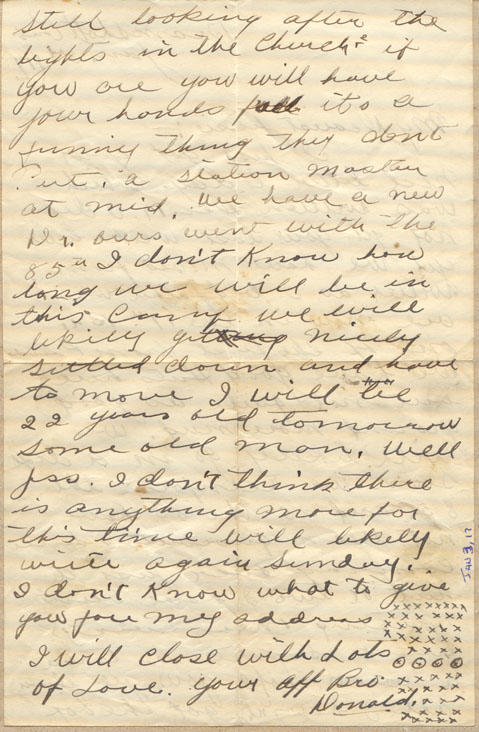 still looking after the
lights in the Church? if
you are you will have
your hands full its a
funny thing they dont
Put, a station master
at mid. we have a new
Dr. ours went with the
85th I don't Know how
long we will be in
this Camp we will
likely get nicely
settled down and have
to move I will be
22 years old tomorrow
some old man. Well
Jss. I don't think there
is anything more for
this time will likely
write again Sunday.
I don't Know what to give
you for my address
I will close with Lots
of Love. your aff Bro.
Donald.
JAN 3, 17
x x x x x x